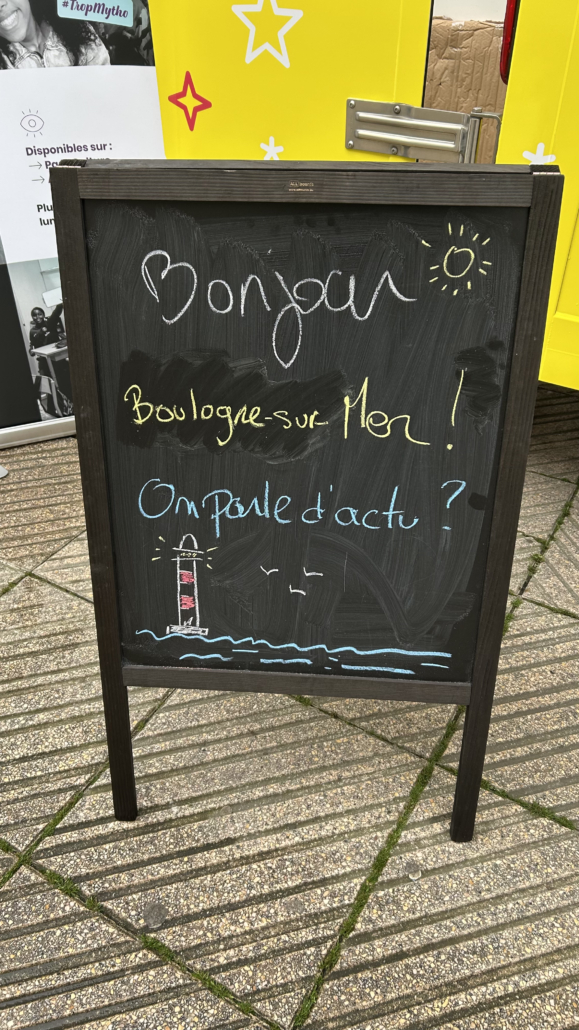 #TropMytho
Disponibles sur :
→
→
Bonjour
Boulogne-sur-Mer !
On parle d'actu ?